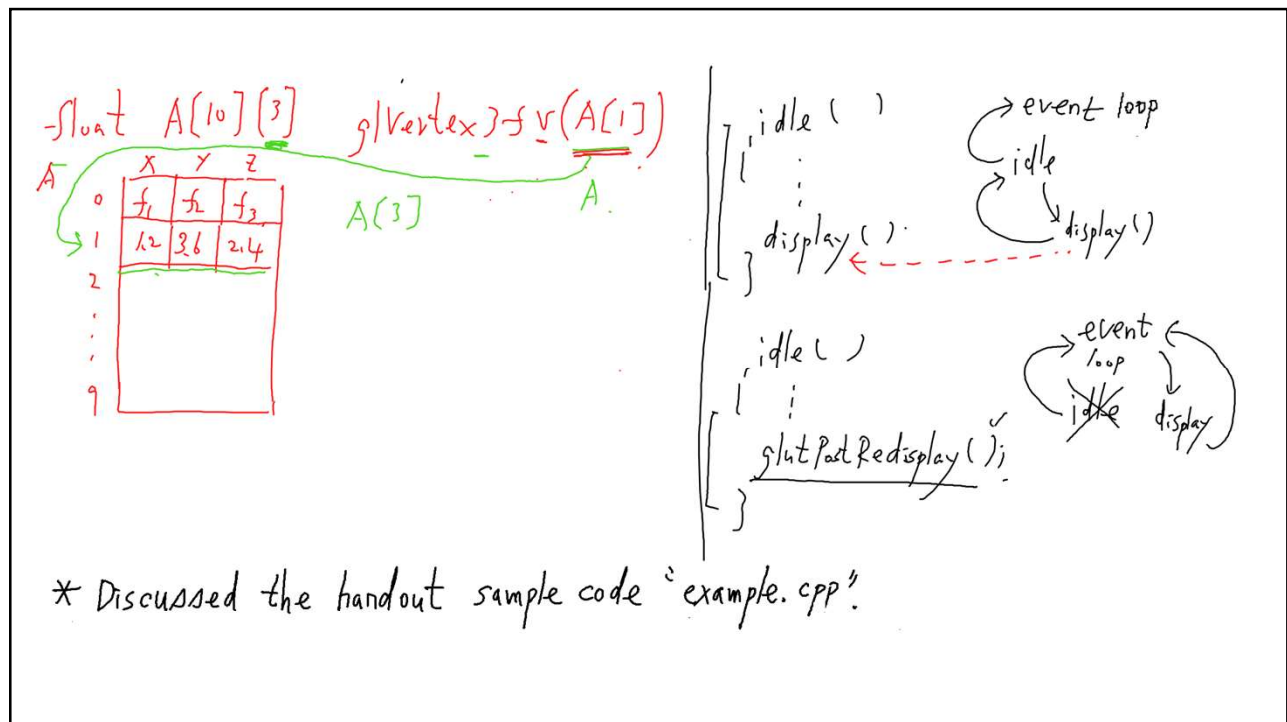 float A[10][3] glVertex3fv(A[1])
A
X Y Z
0 f1 f2 f3
1 1.2 3.6 2.4
2
9
A[3]
A
idle ( )
{
display ( )
}
event loop
idle
display ( )
idle ( )
{
glutPostRedisplay ( );
}
event
loop
idle
display
* Discussed the handout sample code "example.cpp".